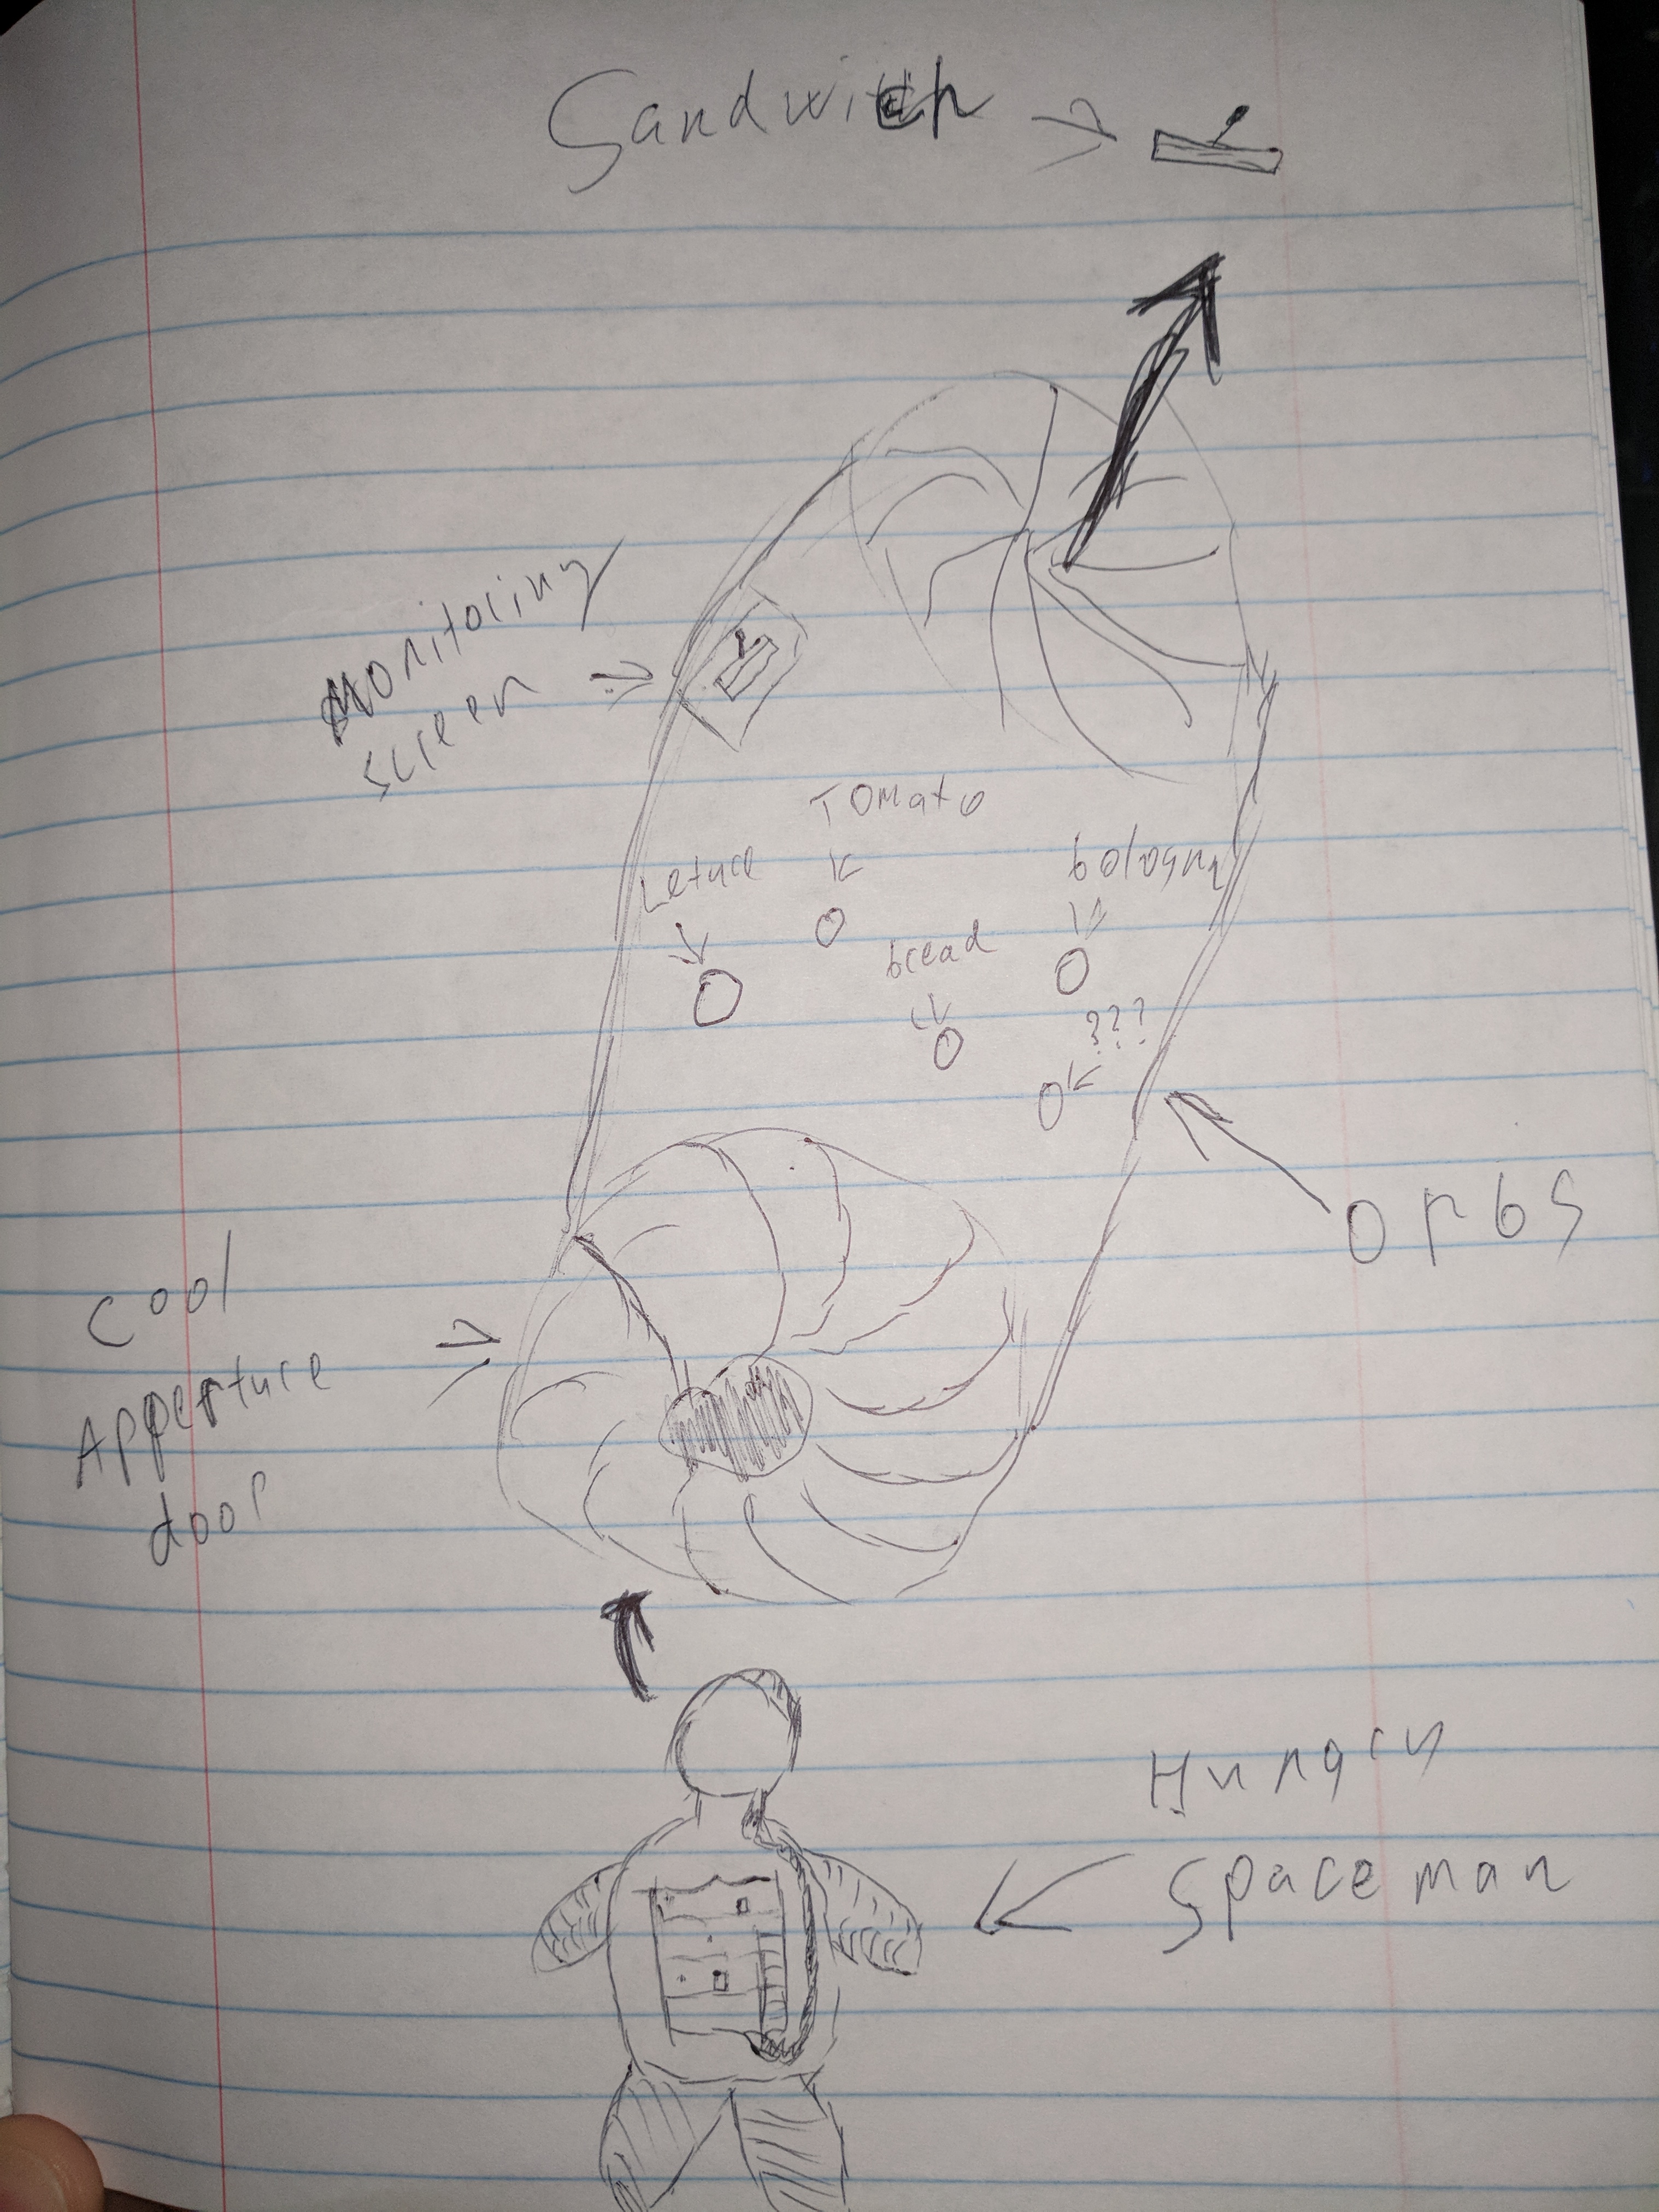 Sandwich
Monitoring
screen
Tomato
Letuce
bologna
bread
???
orbs
Cool
Apperture
door
Hungry
Spaceman